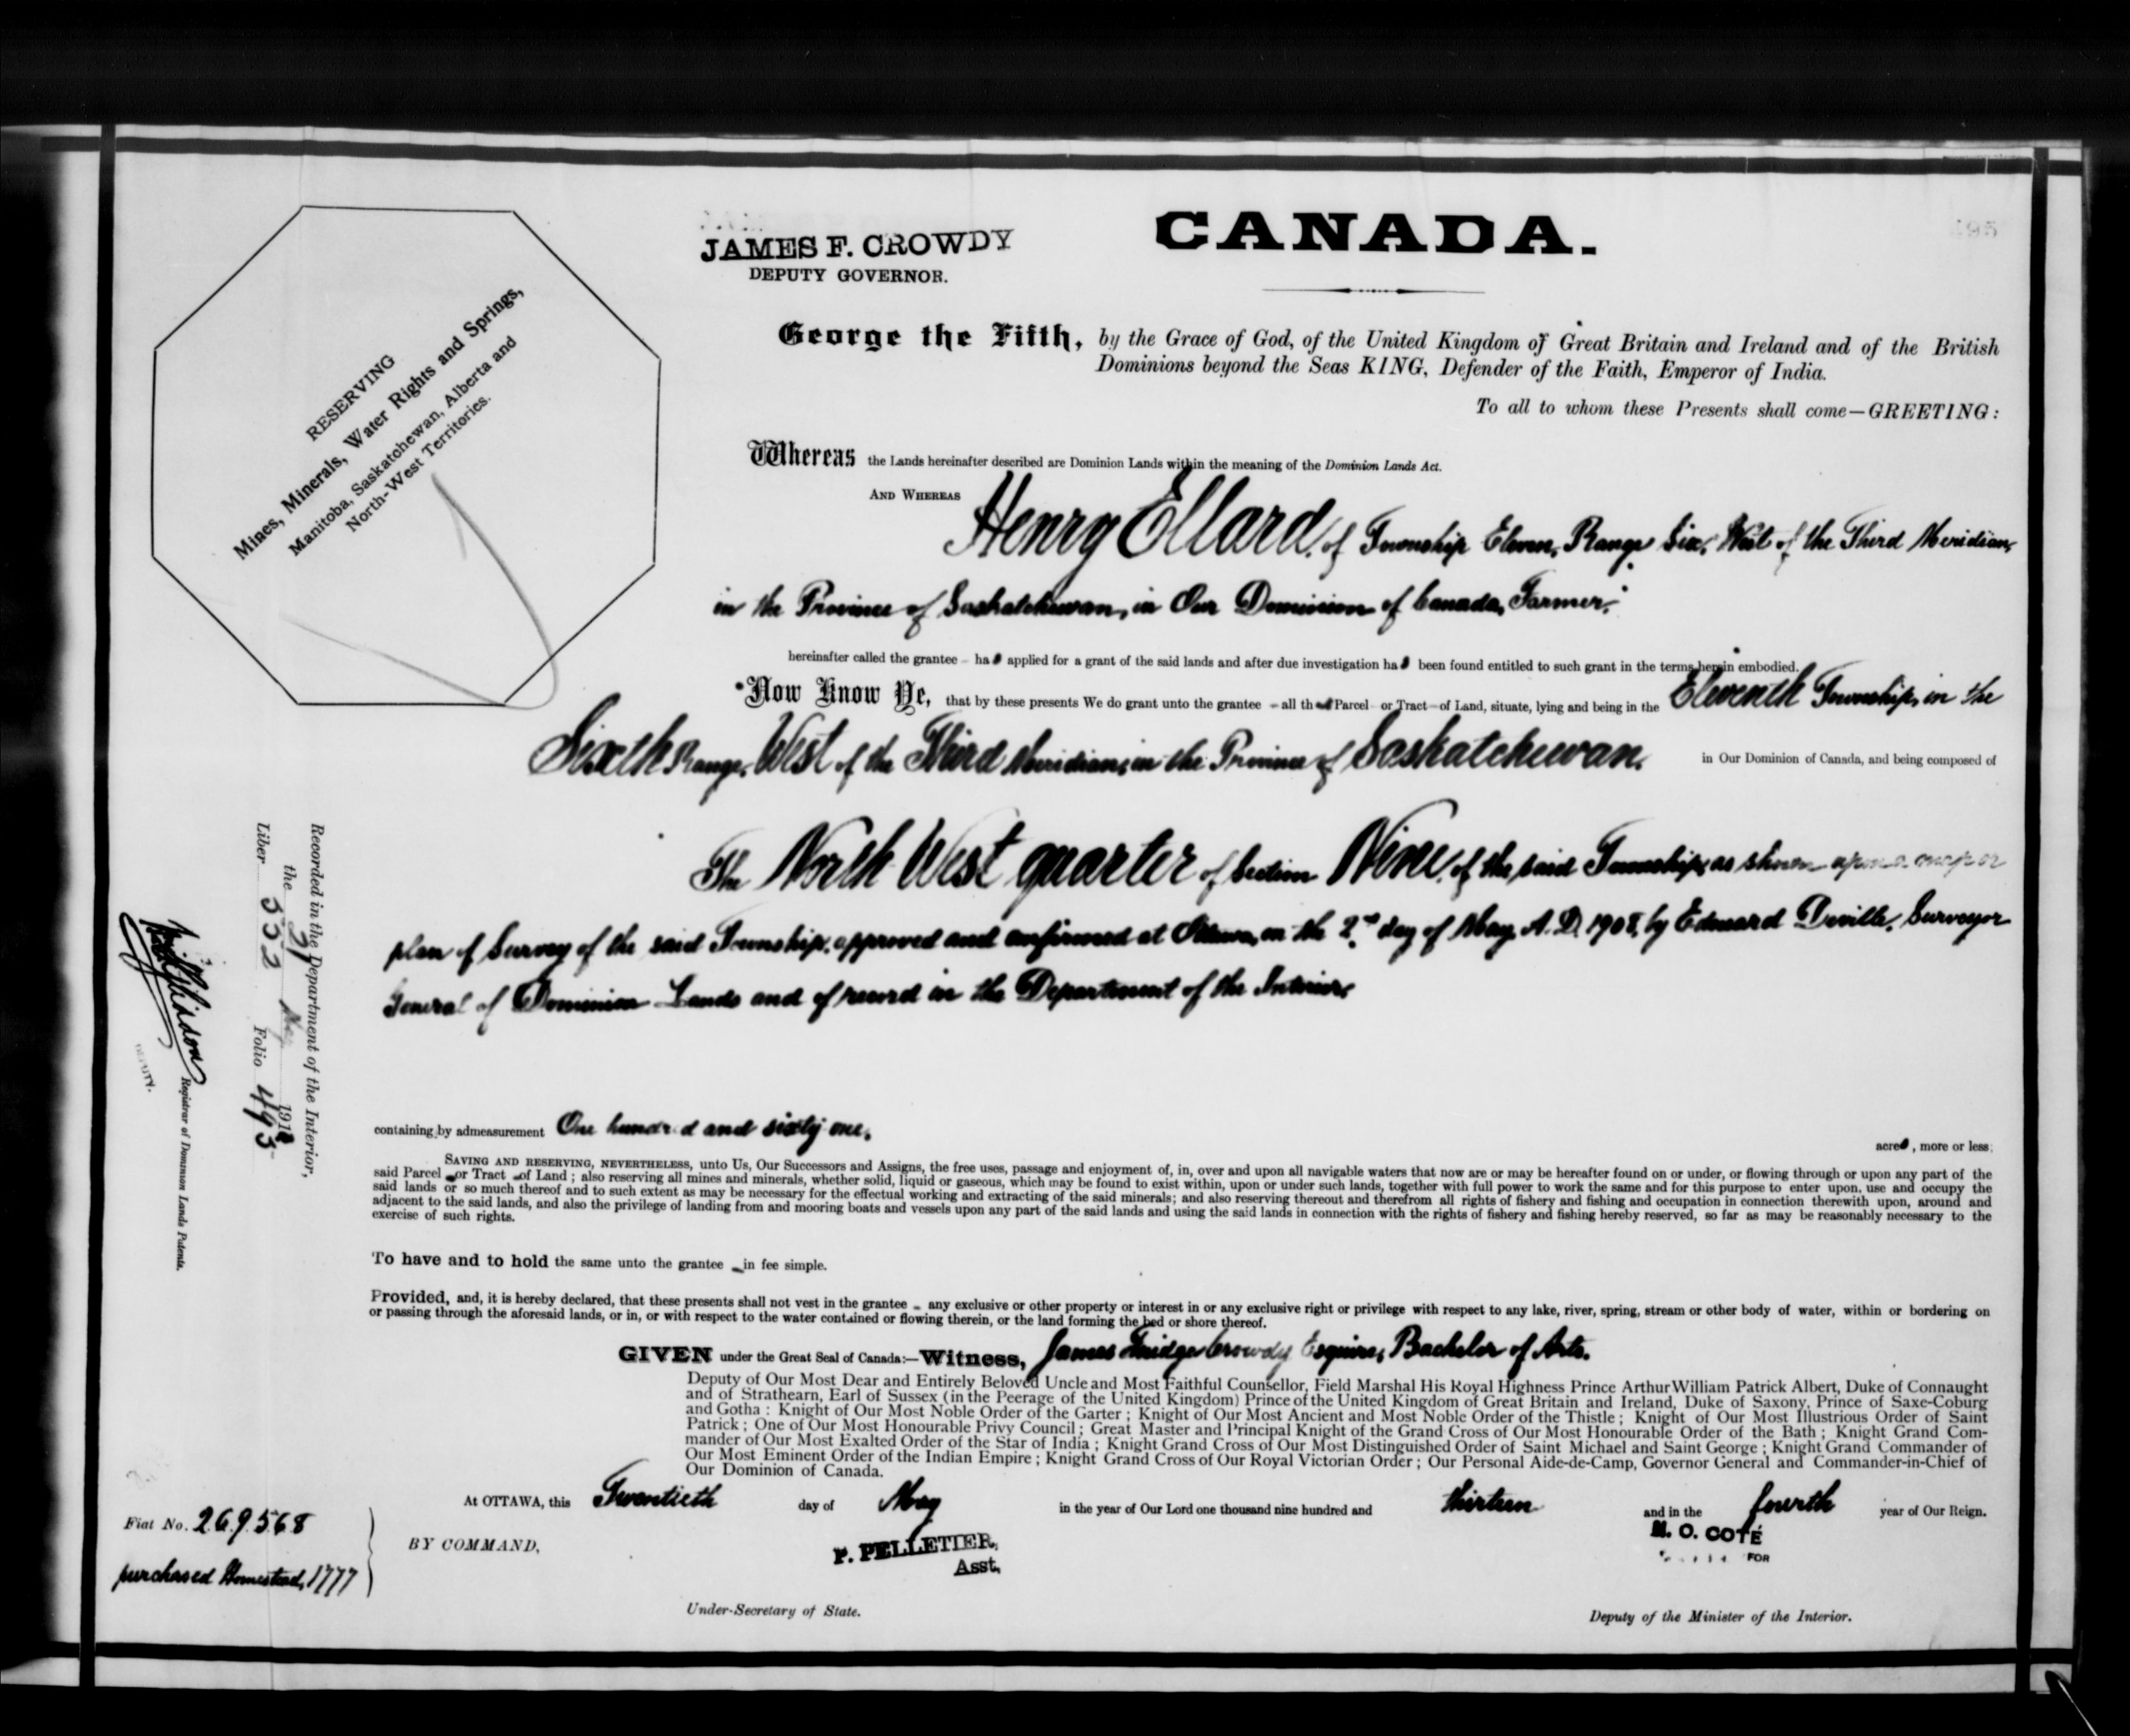 CANADA.
JAMES F. CROWDY
DEPUTY GOVERNOR.
RESERVING
Mines, Minerals, Water Rights and Springs,
Manitoba, Saskatchewan, Alberta and
North-West Territories.
George the Fifth, by the Grace of God, of the United Kingdom of Great Britain and Ireland and of the British
Dominions beyond the Seas KING, Defender of the Faith, Emperor of India.
To all to whom these Presents shall come—GREETING:
Whereas the Lands hereinafter described are Dominion Lands within the meaning of the Dominion Lands Act.
AND WHEREAS
Henry Ellard, of Township Eleven, Range Six, West of the Third Meridian,
in the Province of Saskatchewan, in Our Dominion of Canada, Farmer,
hereinafter called the grantee has applied for a grant of the said lands and after due investigation has been found entitled to such grant in the terms herein embodied.
Now Know Ye, that by these presents We do grant unto the grantee all that Parcel or Tract of Land, situate, lying and being in the Eleventh Township, in the
Sixth Range, West of the Third Meridian, in the Province of Saskatchewan, in Our Dominion of Canada, and being composed of
The North West quarter of Section Nine, of the said Township, as shown upon a map or
plan of Survey of the said Township, approved and confirmed at Ottawa, on the 2nd day of May, A.D. 1908, by Edouard Deville, Surveyor
General of Dominion Lands and of record in the Department of the Interior,
containing by admeasurement One hundred and sixty one, acres, more or less;
SAVING AND RESERVING, NEVERTHELESS, unto Us, Our Successors and Assigns, the free uses, passage and enjoyment of, in, over and upon all navigable waters that now are or may be hereafter found on or under, or flowing through or upon any part of the
said Parcel or Tract of Land; also reserving all mines and minerals, whether solid, liquid or gaseous, which may be found to exist within, upon or under such lands, together with full power to work the same and for this purpose to enter upon, use and occupy the
said lands or so much thereof and to such extent as may be necessary for the effectual working and extracting of the said minerals; and also reserving thereout and therefrom all rights of fishery and fishing and occupation in connection therewith upon, around and
adjacent to the said lands, and also the privilege of landing from and mooring boats and vessels upon any part of the said lands and using the said lands in connection with the rights of fishery and fishing hereby reserved, so far as may be reasonably necessary to the
exercise of such rights.
To have and to hold the same unto the grantee in fee simple.
Provided, and, it is hereby declared, that these presents shall not vest in the grantee any exclusive or other property or interest in or any exclusive right or privilege with respect to any lake, river, spring, stream or other body of water, within or bordering on
or passing through the aforesaid lands, or in, or with respect to the water contained or flowing therein, or the land forming the bed or shore thereof.
GIVEN under the Great Seal of Canada:—Witness, James Crowdy Esquire, Bachelor of Arts.
Deputy of Our Most Dear and Entirely Beloved Uncle and Most Faithful Counsellor, Field Marshal His Royal Highness Prince Arthur William Patrick Albert, Duke of Connaught
and of Strathearn, Earl of Sussex (in the Peerage of the United Kingdom) Prince of the United Kingdom of Great Britain and Ireland, Duke of Saxony, Prince of Saxe-Coburg
and Gotha: Knight of Our Most Noble Order of the Garter; Knight of Our Most Ancient and Most Noble Order of the Thistle; Knight of Our Most Illustrious Order of Saint
Patrick; One of Our Most Honourable Privy Council; Great Master and Principal Knight of the Grand Cross of Our Most Honourable Order of the Bath; Knight Grand Com-
mander of Our Most Exalted Order of the Star of India; Knight Grand Cross of Our Most Distinguished Order of Saint Michael and Saint George; Knight Grand Commander of
Our Most Eminent Order of the Indian Empire; Knight Grand Cross of Our Royal Victorian Order; Our Personal Aide-de-Camp, Governor General and Commander-in-Chief of
Our Dominion of Canada.
At OTTAWA, this Twentieth day of May in the year of Our Lord one thousand nine hundred and thirteen and in the fourth year of Our Reign.
BY COMMAND,
P. PELLETIER,
Asst.
Under-Secretary of State.
N. O. COTÉ
FOR
Deputy of the Minister of the Interior.
Fiat No. 269568
purchased Homestead, 1777
Recorded in the Department of the Interior,
the 21 May 1913
Liber 532 Folio 495
Registrar of Dominion Lands Patents.
DEPUTY.